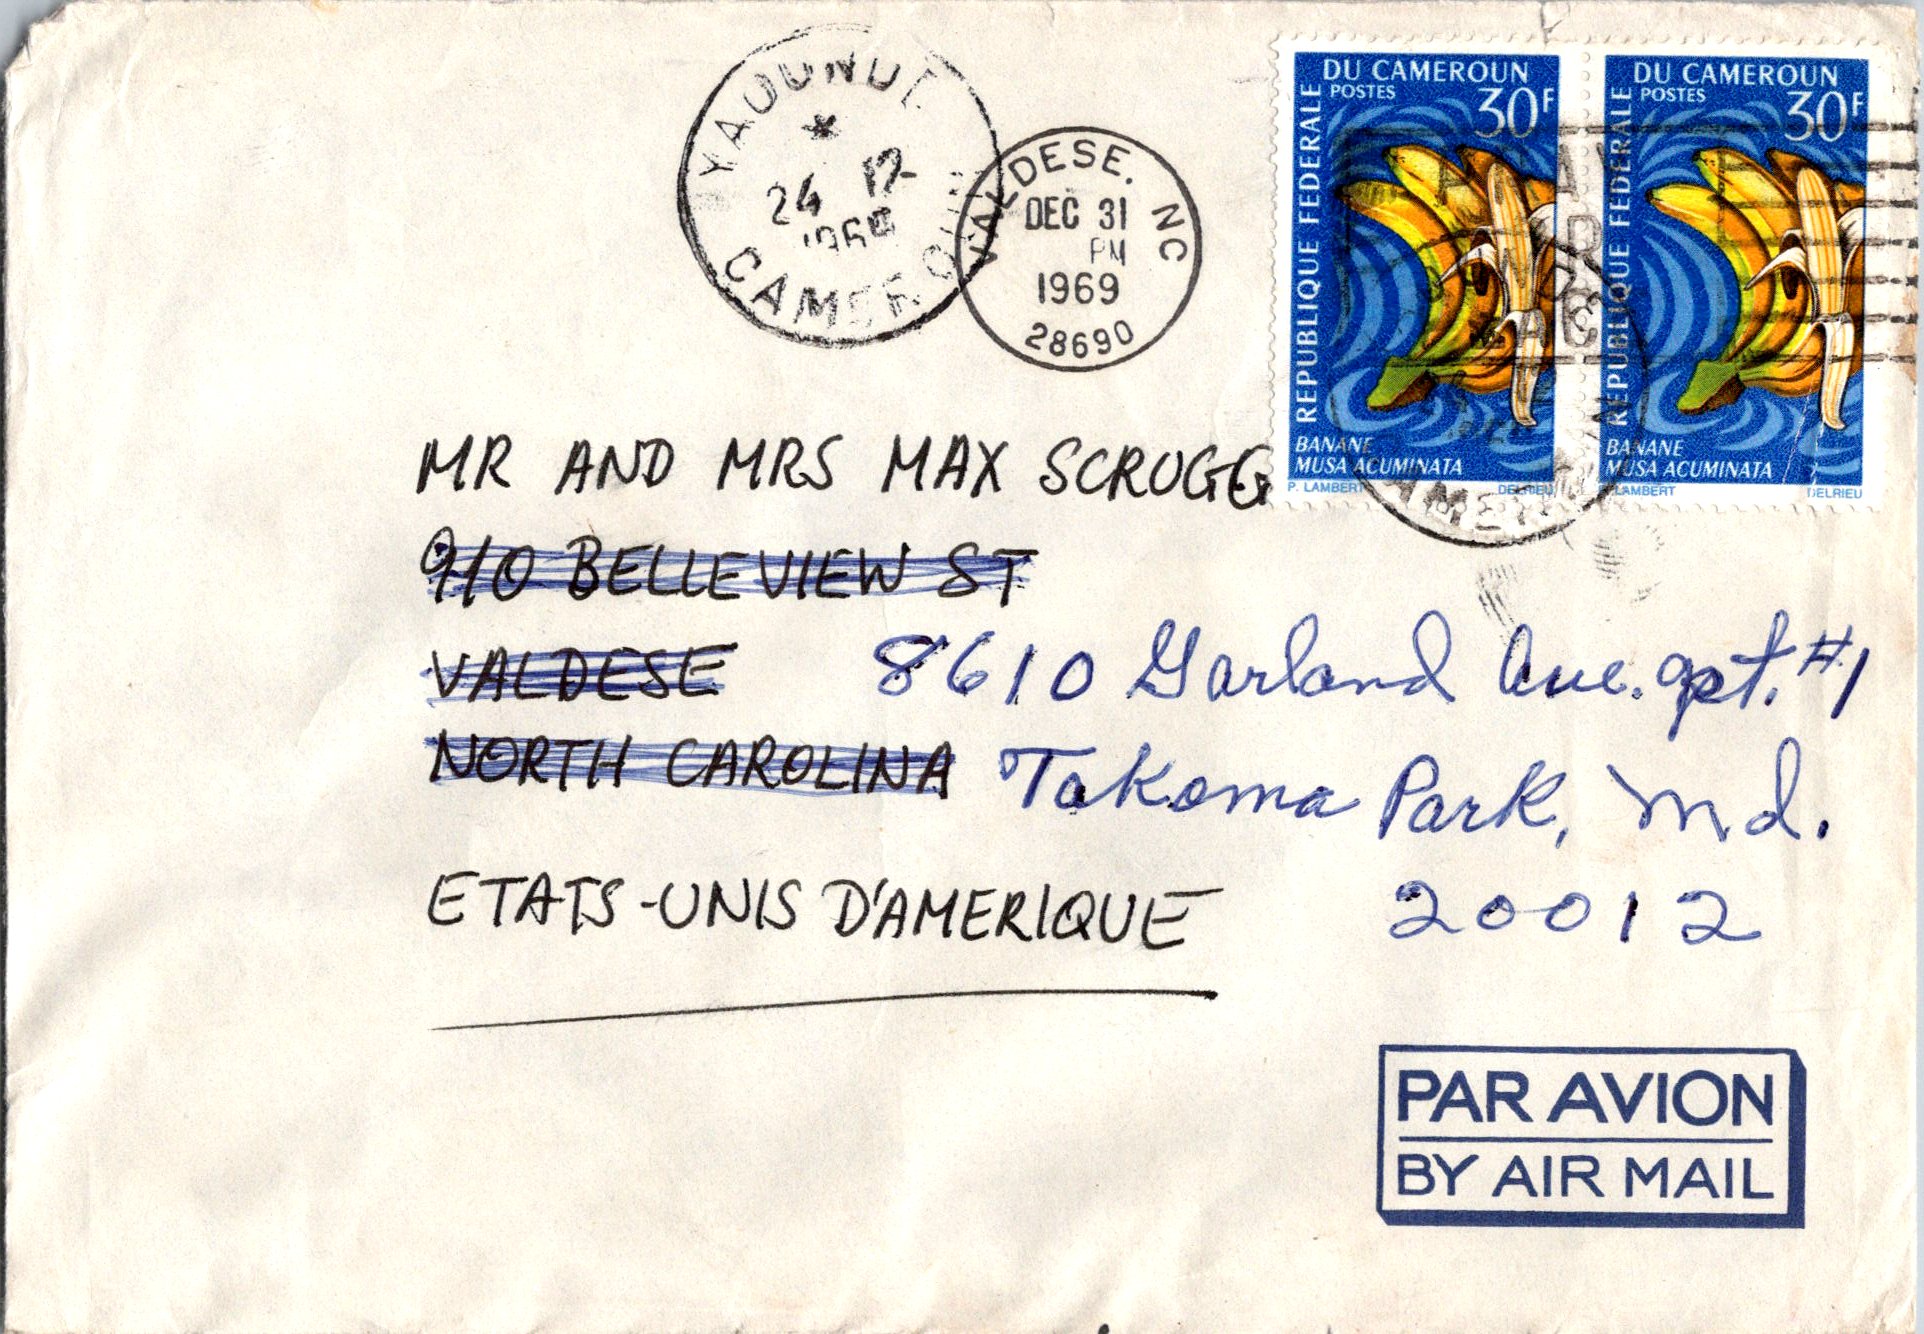 YAOUNDE
24 12
1969
CAMEROUN
VALDESE. NC
DEC 31
PM
1969
28690
REPUBLIQUE FEDERALE
DU CAMEROUN
POSTES
30F
BANANE
MUSA ACUMINATA
P. LAMBERT
DELRIEU
REPUBLIQUE FEDERALE
DU CAMEROUN
POSTES
30F
BANANE
MUSA ACUMINATA
LAMBERT
DELRIEU
PRAY
MR AND MRS MAX SCRUGG
910 BELLEVIEW ST
VALDESE
8610 Garland Ave. apt. #1
NORTH CAROLINA
Takoma Park, Md.
ETATS-UNIS D'AMERIQUE
20012
PAR AVION
BY AIR MAIL